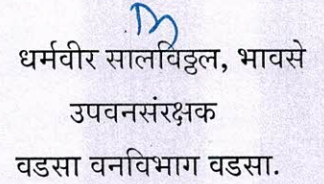 धर्मवीर सालविठ्ठल, भावसे
उपवनसंरक्षक
वडसा वनविभाग वडसा.